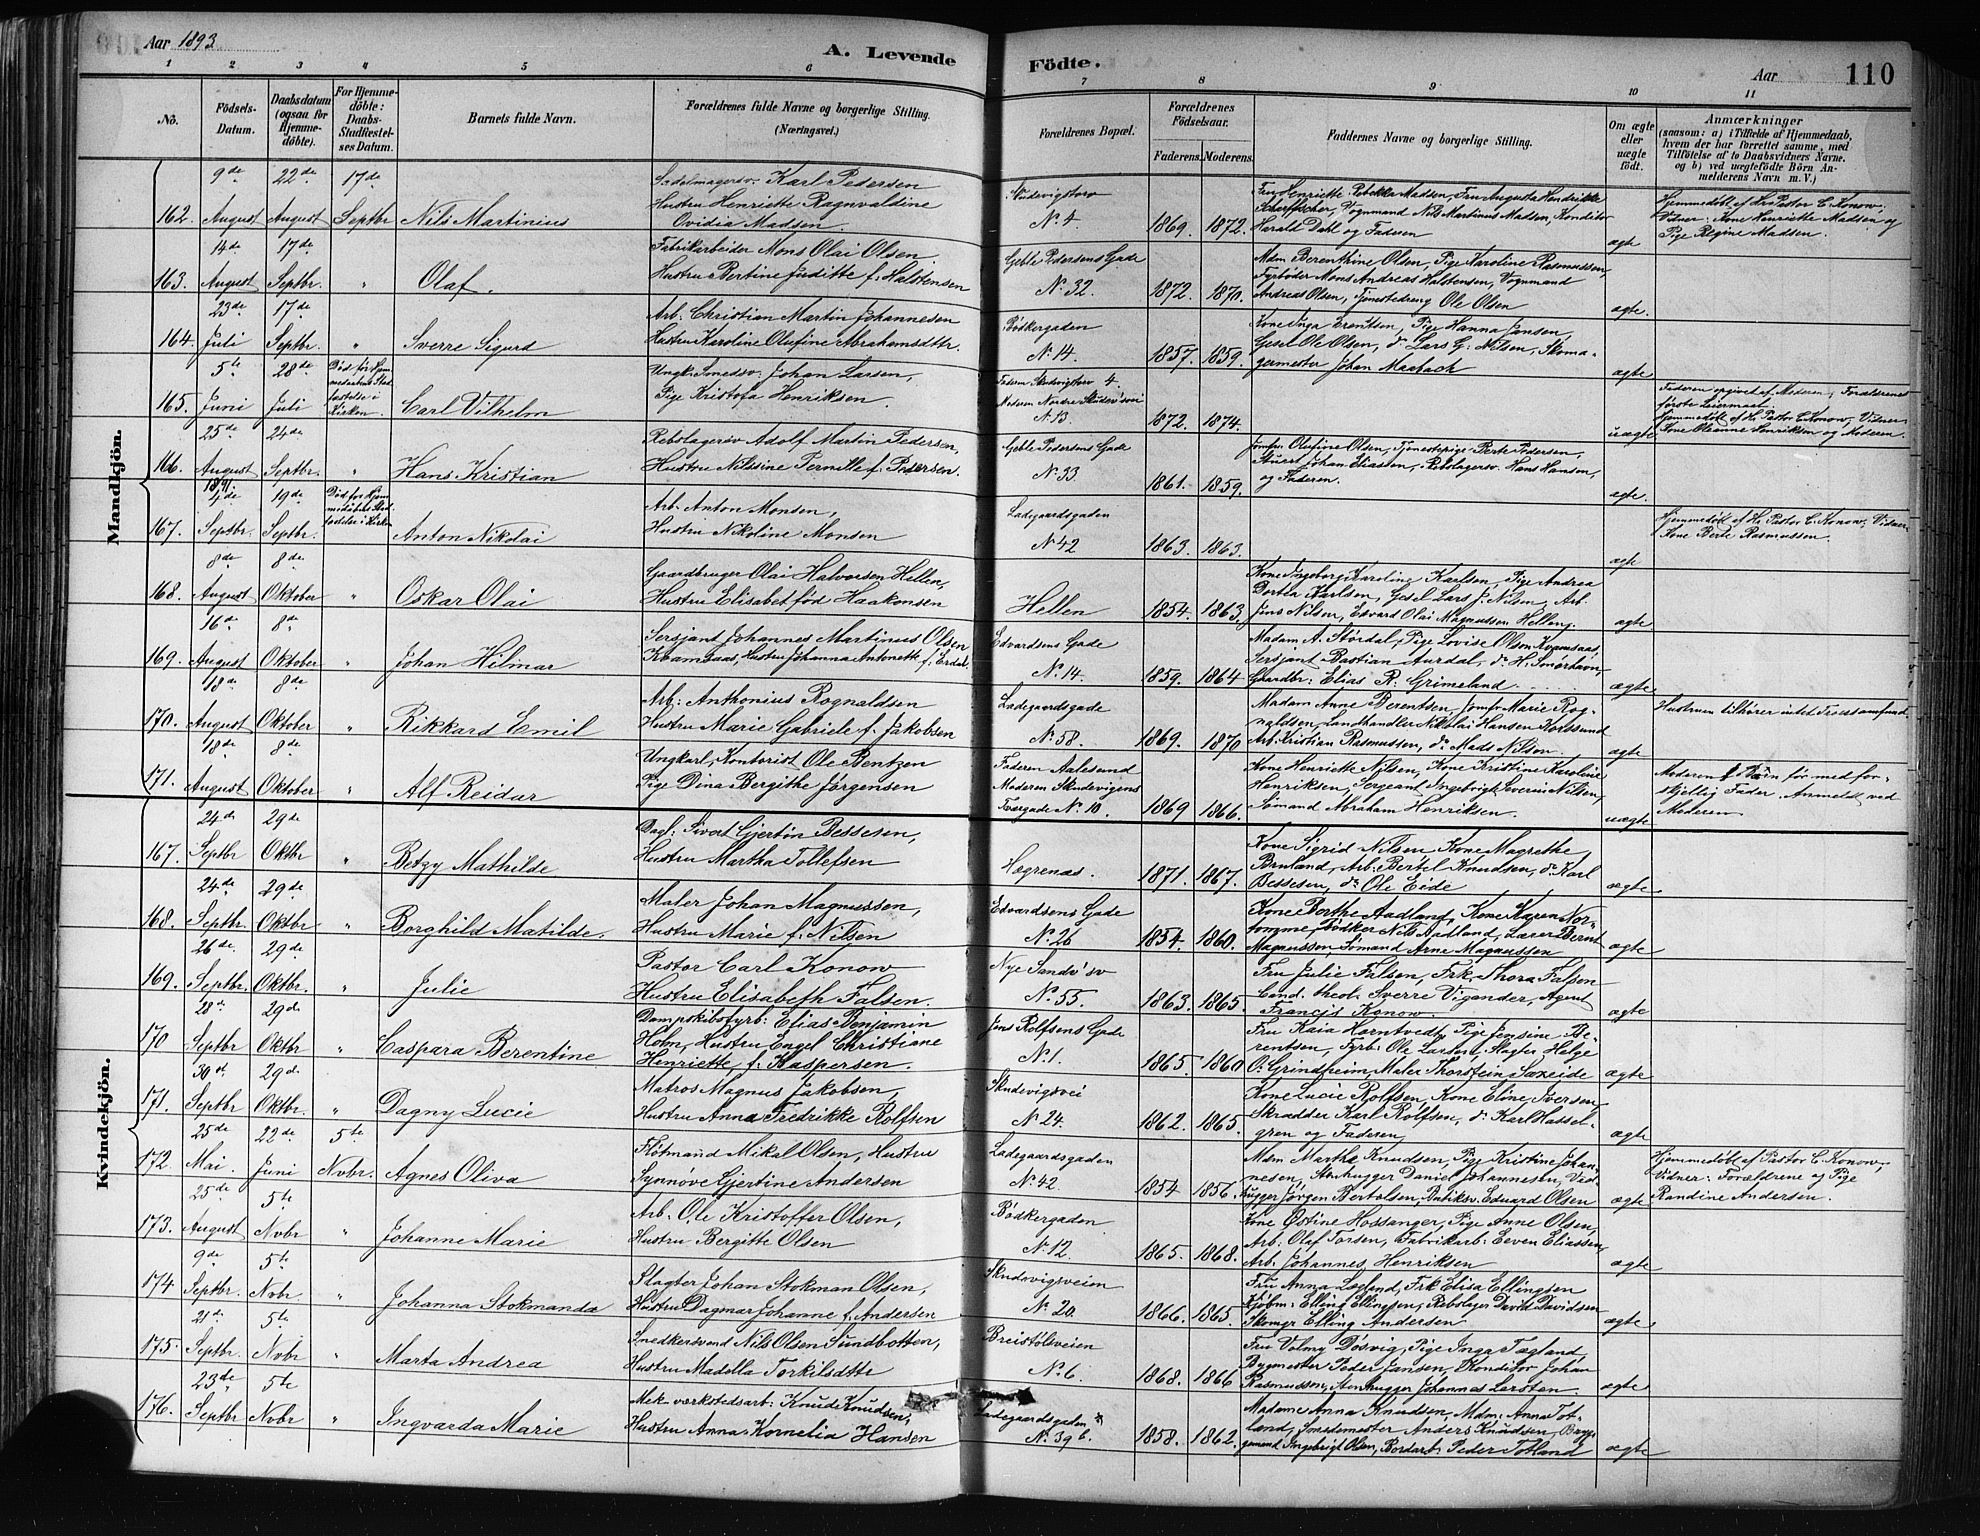 Aar 1893
A. Levende Födte.
Aar
110
1 2 3 4 5 6 7 8 9 10 11
No.
Födsels-Datum.
Daabsdatum (ogsaa for Hjemmedöbte).
For Hjemmedöbte: Daabs-Stadfæstelses Datum.
Barnets fulde Navn.
Forældrenes fulde Navne og borgerlige Stilling. (Næringsvei.)
Forældrenes Bopæl.
Forældrenes Födselsaar.
Faderens. Moderens.
Faddernes Navne og borgerlige Stilling.
Om ægte eller uægte födt.
Anmærkninger
(saasom: a) i Tilfælde af Hjemmedaab, hvem der har forrettet samme, med Tilföielse af to Daabsvidners Navne. og b) ved uægtefödte Börn Anmelderens Navn m. V.)
Mandkjön.
162. 9de August 22de August 17de Septbr Nils Martinius
Sadelmagersv. Karl Pedersen
Hustru Henriette Ragnvaldine
Ovidia Madsen.
Skudevigstorv
No. 4 1869. 1872.
Fru Henriette Rebekka Madsen, Fru Augusta Hendrikke
Vognmand Nils Martinus Madsen, Konditor
Harald Dahl og Faderen
ægte
Hjemmedøbt af Hr. Pastor C. Konow,
Vidner: Kone Henriette Madsen og
Pige Regine Madsen.
163. 14de August 17de Septbr. " Olaf.
Fabrikarbeider Mons Olai Olsen,
Hustru Bertine Juditte f. Halstensen
Geble Pedersens Gade
No. 32. 1872. 1870.
Mdm Berenthine Olsen, Pige Karoline Rasmussen,
Fyrbøder Mons Andreas Halstensen, Vognmand
Andreas Olsen, Tjenestedreng Ole Olsen
ægte.
164. 23de Juli 17de Septbr. " Sverre Sigurd
Arb. Christian Martin Johannesen
Hustru Karoline Olufine Abrahamsdttr.
Bødkergaden
No. 14. 1857. 1859.
Kone Inga Erentsen, Pige Hanna Jansen,
Gesel Ole Olsen, do Lars G. Nilsen, Skoma-
germester Johan Maabach
ægte
165. 5te Juni 28de Juli Død før Hjem
medaabens Stad
fæstelse i
Kirken. Carl Vilhelm
Ungk. Smedsv. Johan Larsen,
Pige Kristofa Henriksen.
Faderen Skudevigstorv 4.
Moderen Nordre Skudev'svei
No. 13. 1872. 1874.
uægte
Faderen opgivet af Moderen, Forældrenes
første Leiermaal.
Hjemmedøbt af Hr. Pastor C. Konow, Vidner
Kone Oleanne Henriksen og Moderen.
166. 25de August 24de Septbr. " Hans Kristian
Rebslagersv Adolf Martin Pedersen,
Hustru Nilssine Pernille f. Pedersen.
Geble Pedersens Gade
No. 33. 1861. 1859.
Jomfr. Olufine Olsen, Tjenestepige Berte Pedersen,
Johan Eliassen, Rebslagersv. Hans Hansen,
og Faderen.
ægte.
167. 1ste Septbr. 19de Septbr. Død før Hjem
medaabens Stad
fæstelse i Kirken Anton Nikolai
Arb. Anton Monsen,
Hustru Nikoline Monsen
Ladegaardsgaden
No. 42 1863. 1863.
ægte
Hjemmedøbt af Hr. Pastor C. Konow, Vidner
Kone Berte Rasmussen.
168. 8de August 8de Oktober " Oskar Olai
Gaardbruger Olai Halvorsen Hellen,
Hustru Elisabet fød Haakonsen
Hellen 1854. 1863.
Kone Ingeborg Karoline Karlsen, Pige Andrea
Dorthea Karlsen, Gesel Lars J. Nilsen, Arb.
Jens Nilsen, Edvard Olai Magnussen Hellen.
ægte
169. 16de August 8de Oktober " Johan Hilmar
Sersjant Johannes Martinus Olsen
Kvamsaas, Hustru Johanna Antonette f. Erdal.
Edvardsens Gade
No. 14. 1859. 1864
Madam A. Størdal, Pige Lovise Olson Kvamsaas,
Sersjant Bastian Aurdal, do H. Smørhavn,
Gaardbr: Elias R. Grimeland
ægte
170. 18de August 8de Oktober " Rikkard Emil
Arb: Anthonius Rognaldsen
Hustru Marie Gabriele f. Jakobsen
Ladegaardsgade
No. 58. 1869. 1870
Madam Anne Berentsen, Jomfr Marie Rog-
naldsen, Landhandler Nikolai Hansen
Arb. Kristian Rasmussen, do Mads Nilsen.
ægte
Hustruen tilhører intet Trossamfund.
171. 18de August 8de Oktober " Alf Reidar
Ungkarl, Kontorist Ole Bentzen
Pige Dina Bergithe Jørgensen
Faderen Aalesund
Moderen Skudevigens
Tvergade No. 10. 1869 1866.
Kone Henriette Nilsen, Kone Kristine Karoline
Henriksen, Sergeant Ingebrigt Severin Nilsen,
Sømand Abraham Henriksen.
uægte
Moderen Børn før med for-
skjellig Fader. Anmeldt ved
Moderen
Kvindekjön.
167. 24de Septbr 29de Oktbr " Betzy Mathilde
Dagl: Sivert Gjertin Bessesen,
Hustru Martha Tollefsen
Hegrenæs. 1871. 1867.
Kone Sigrid Nilsen Kone Magrethe
Bruland, Arb: Bertel Knudsen, do Karl
Bessesen, do Ole Eide
ægte
168. 24de Septbr 29de Oktbr. " Borghild Matilde.
Maler Johan Magnussen,
Hustru Marie f. Nilsen
Edvardsens Gade
No. 26 1854. 1860.
Kone Berthe Aadland, Kone Karen
Bødker Nils Aadland, Lærer Bernt
Magnussen, Sømand Arne Magnussen
ægte
169. 26de Septbr. 29de Oktbr. " Julie
Pastor Carl Konow
Hustru Elisabeth Falsen.
Nye Sandv'sv
No. 55. 1863. 1865.
Fru Julie Falsen, Frk. Thora Falsen
Cand. theol. Sverre Vigander, Agent
Francis Konow.
ægte
170 28de Septbr 29de Oktbr " Caspara Berentine
Dampskibsfyrb: Elias Benjamin
Holm, Hustru Engel Christiane
Henriette f. Kaspersen.
Jens Rolfsens Gade
No. 1. 1865. 1860
Fru Kaia Horntvedt, Pige Jensine Be-
rentsen, Fyrb: Ole Larsen, Slagter Helge
O. Grindheim, Maler Thorstein Saxeide
ægte
171. 30de Septbr 29de Oktbr. " Dagny Lucie
Matros Magnus Jakobsen,
Hustru Anna Fredrikke Rolfsen
Skudevigsvei
No. 24. 1862. 1865.
Kone Lucie Rolfsen, Kone Eline Iversen
Skrædder Karl Rolfsen, do Karl Hassel-
gren og Faderen
ægte
172. 25de Mai. 22de Juni 5te Nvbr. Agnes Oliva
Fløtmand Mikal Olsen, Hustru
Synnøve Gjertine Andersen
Ladegaardsgaden
No. 42. 1854 1856.
Mdm Marthe Knudsen, Pige Kristine Johan-
nesen, Stenhugger Daniel Johannesen, Ved-
hugger Jørgen Bertolsen, Butiksv. Eduard Olsen
ægte
Hjemmedøbt af Pastor C. Konow,
Vidner: Forældrene og Pige
Randine Andersen.
173. 25de August 5te Nvbr " Johanne Marie
Arb: Ole Kristoffer Olsen,
Hustru Bergitte Olsen
Bødkergaden
No. 12. 1865. 1868.
Kone Østine Hossanger, Pige Anne Olsen,
Arb: Olaf Torsen, Fabrikarb: Eeven Eliassen,
Arb: Johannes Henriksen
ægte
174 9de Septbr. 5te Nvbr. " Johanna Stokmanda
Slagter Johan Stokman Olsen,
Hustru Dagmar Johanne f. Andersen
Skudevigsveien
No. 20. 1866. 1865.
Fru Anna Lægland, Frk Elisa Ellingsen
Kjøbm: Elling Ellingsen, Rebslager David Davidsen
Skomgr Elling Andersen
ægte
175. 21de Septbr. 5te Nvbr " Marta Andrea
Snedkersvend Nils Olsen Sundbotten,
Hustru Madella Torkilsdttr
Breistølsveien
No. 6. 1868. 1866
Fru Valmy Døsvig, Pige Inga Tægland,
Bygmester Peder Jansen, Konditor Johan
Rasmussen, Stenhugger Johannes Larsten
ægte
176. 23de Septbr 5te Nvbr " Ingvarda Marie
Mek. værkstedsarb: Knud Knudsen,
Hustru Anna Kornelia Hansen
Ladegaardsgaden
No. 39 b. 1858. 1862.
Madame Anna Knudsen, Mdm: Anna Tot-
land, Smedemester Anders Knudsen, Bryg-
gemand Ingebrigt Olsen, Bordarb: Peder Totland
ægte